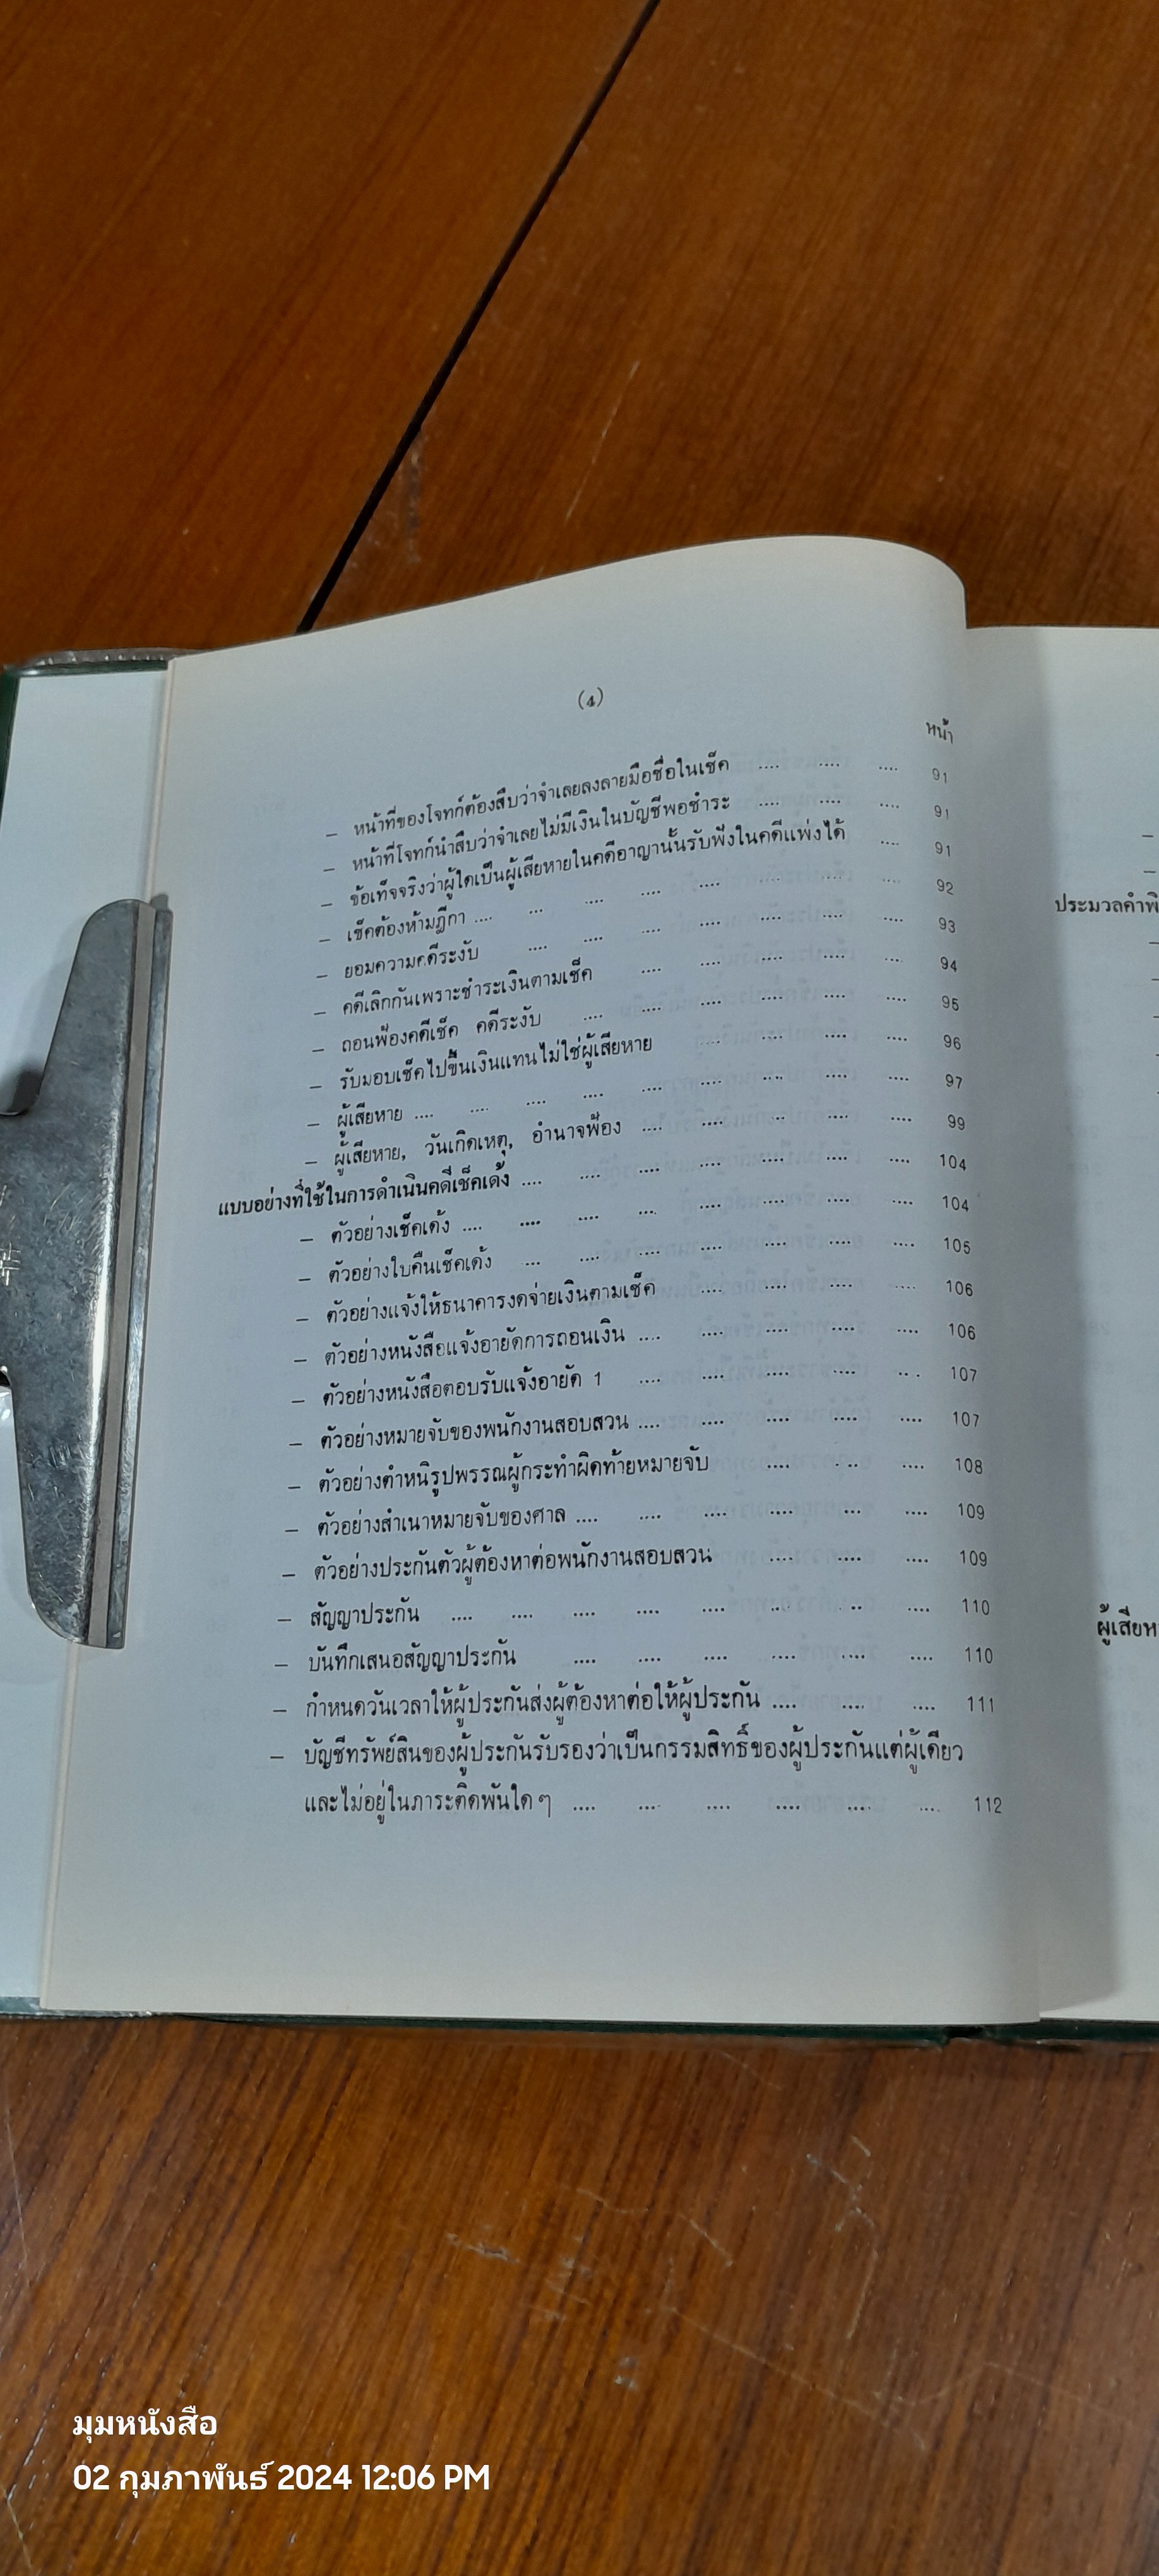 (4)
หน้า
— หน้าที่ของโจทก์ต้องสืบว่าจำเลยลงลายมือชื่อในเช็ค .... .... .... 91
— หน้าที่โจทก์นำสืบว่าจำเลยไม่มีเงินในบัญชีพอชำระ .... .... .... 91
— ข้อเท็จจริงว่าผู้ใดเป็นผู้เสียหายในคดีอาญานั้นรับฟังในคดีแพ่งได้ .... 91
— เช็คต้องห้ามฎีกา .... ... .... .... .... .... .... .... 92
— ยอมความคดีระงับ .... .... .... .... .... .... .... 93
— คดีเลิกกันเพราะชำระเงินตามเช็ค .... .... .... .... .... 94
— ถอนฟ้องคดีเช็ค คดีระงับ .... .... .... .... .... .... 95
— รับมอบเช็คไปขึ้นเงินแทนไม่ใช่ผู้เสียหาย .... .... .... .... 96
— ผู้เสียหาย .... .... .... .... .... .... .... .... .... 97
— ผู้เสียหาย, วันเกิดเหตุ, อำนาจฟ้อง .... .... .... .... .... 99
แบบอย่างที่ใช้ในการดำเนินคดีเช็คเด้ง .... .... .... .... .... .... .... 104
— ตัวอย่างเช็คเด้ง .... .... .... .... .... .... .... .... 104
— ตัวอย่างใบคืนเช็คเด้ง ... .... .... .... .... .... .... 105
— ตัวอย่างแจ้งให้ธนาคารงดจ่ายเงินตามเช็ค .... .... .... .... 106
— ตัวอย่างหนังสือแจ้งอายัดการถอนเงิน .... .... .... .... .... 106
— ตัวอย่างหนังสือตอบรับแจ้งอายัด 1 .... .... .... .... .... 107
— ตัวอย่างหมายจับของพนักงานสอบสวน .... .... .... .... .... 107
— ตัวอย่างตำหนิรูปพรรณผู้กระทำผิดท้ายหมายจับ .... .... .... 108
— ตัวอย่างสำเนาหมายจับของศาล .... .... .... .... .... .... 109
— ตัวอย่างประกันตัวผู้ต้องหาต่อพนักงานสอบสวน .... .... .... 109
— สัญญาประกัน .... .... .... .... .... .... .... .... 110
— บันทึกเสนอสัญญาประกัน .... .... .... .... .... .... 110
— กำหนดวันเวลาให้ผู้ประกันส่งผู้ต้องหาต่อให้ผู้ประกัน .... .... .... 111
— บัญชีทรัพย์สินของผู้ประกันรับรองว่าเป็นกรรมสิทธิ์ของผู้ประกันแต่ผู้เดียว
และไม่อยู่ในภาระติดพันใด ๆ .... .... .... .... .... .... 112
ประมวลคำพิ
ผู้เสียห
มุมหนังสือ
02 กุมภาพันธ์ 2024 12:06 PM